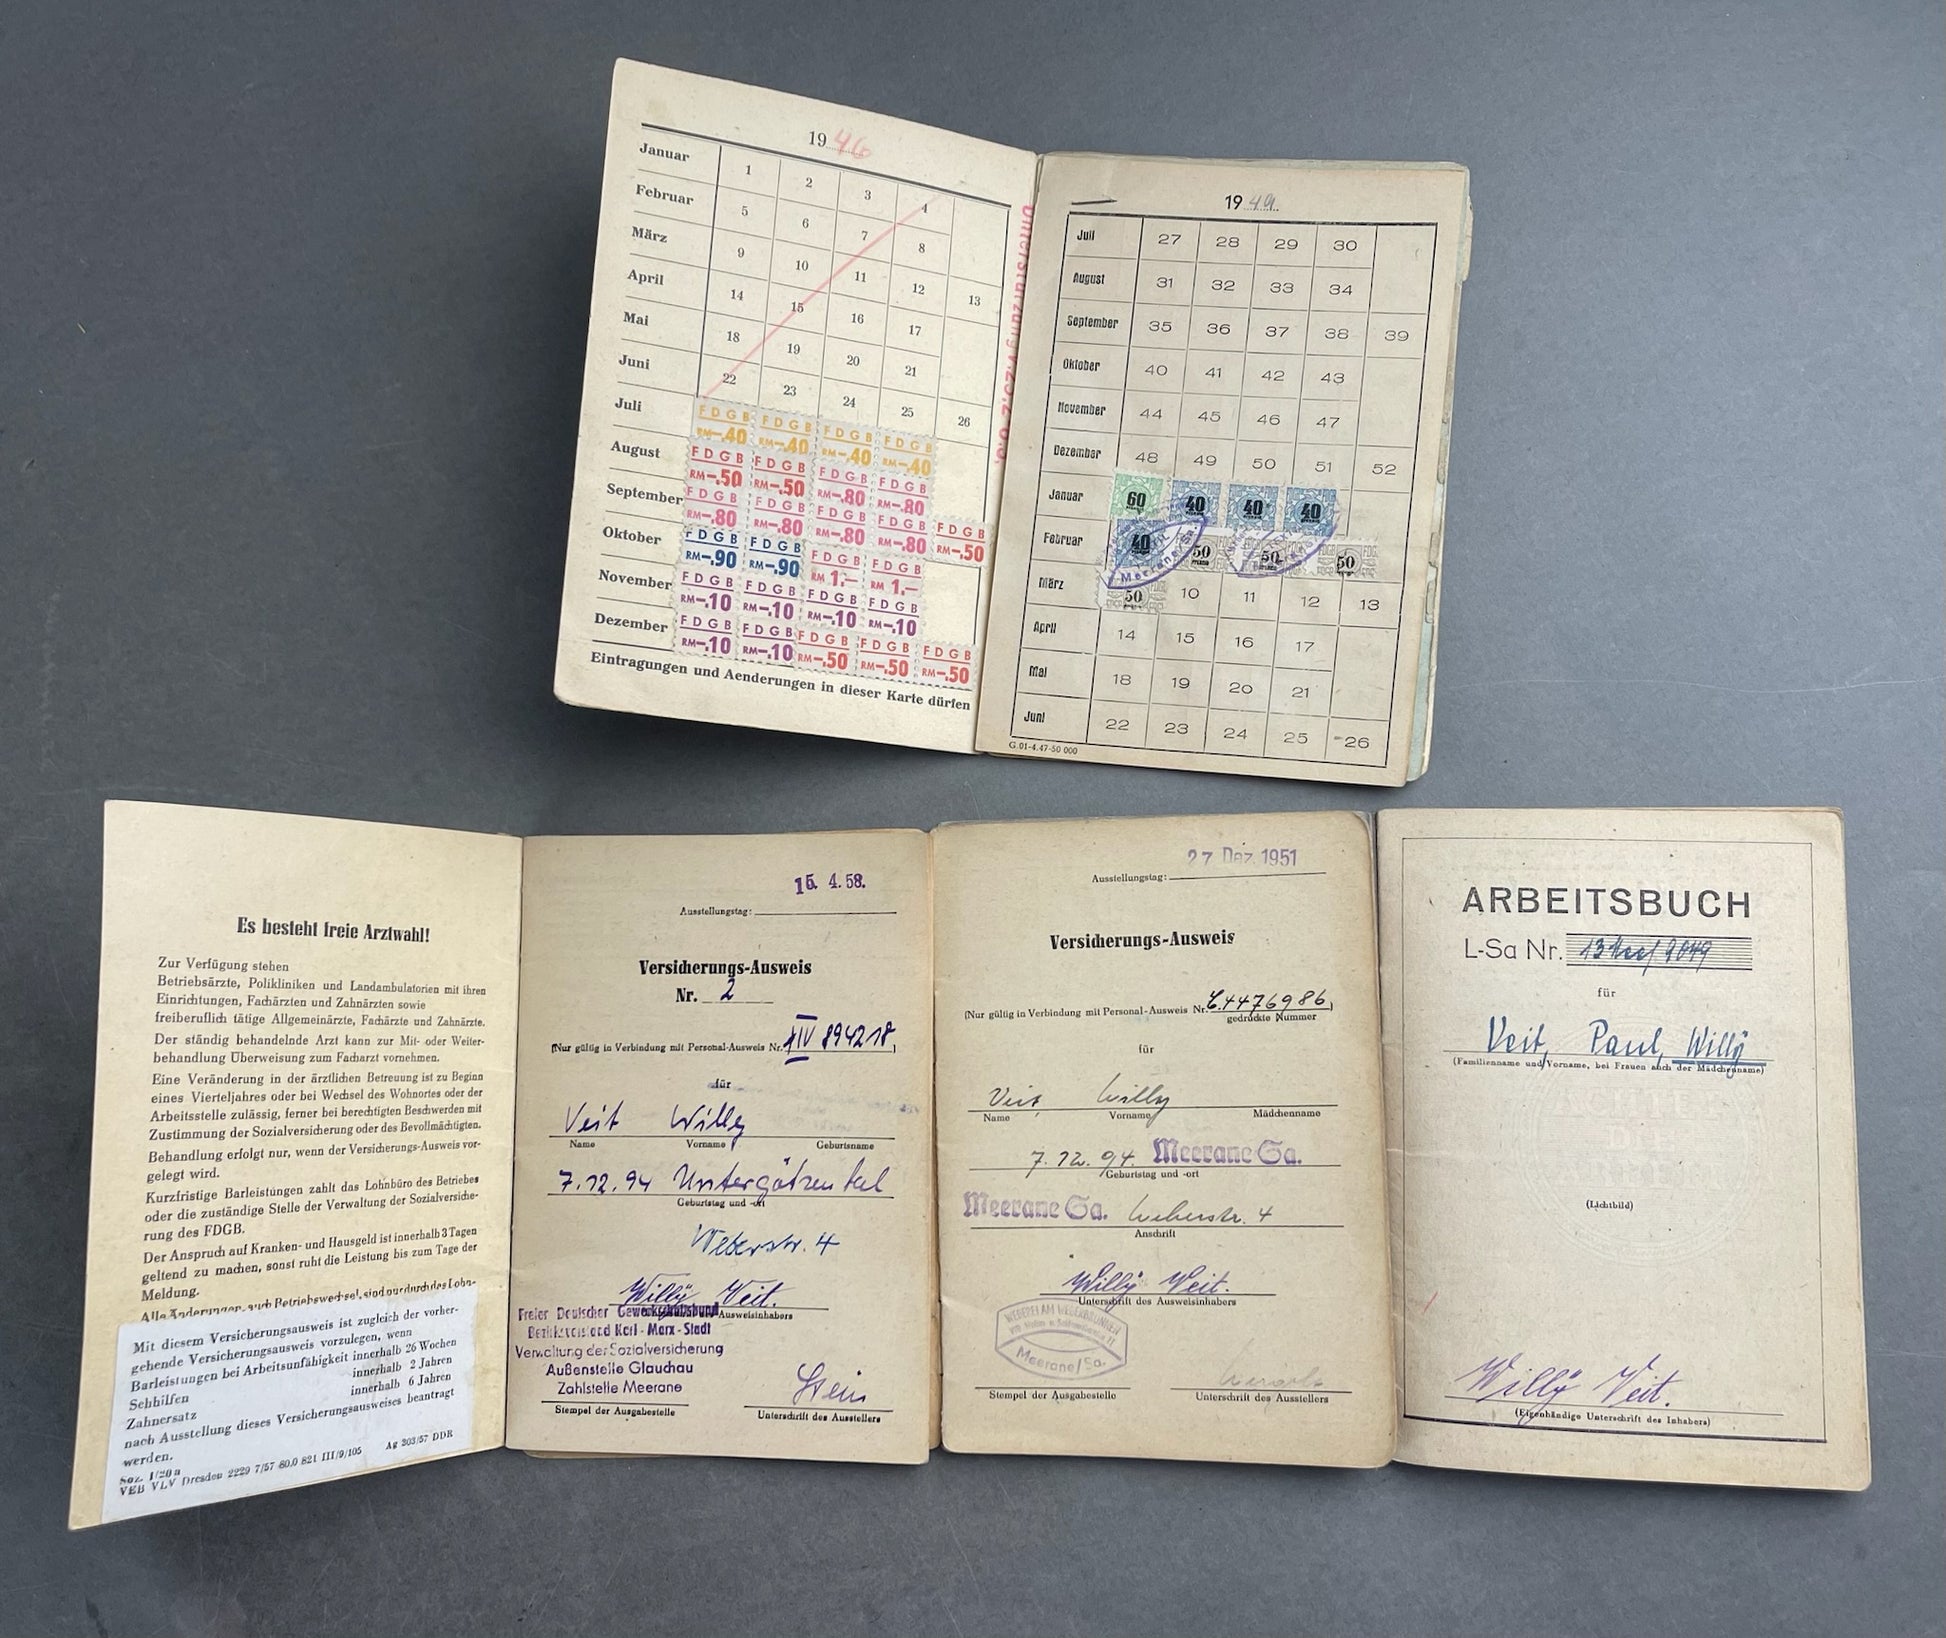 1946
Januar 1 2 3 4
Februar 5 6 7 8
März 9 10 11 12 13
April 14 15 16 17
Mai 18 19 20 21
Juni 22 23 24 25 26
Juli FDGB RM-.40 FDGB RM-.40 FDGB RM-.40 FDGB RM-.40
August FDGB RM-.50 FDGB RM-.50 FDGB RM-.80 FDGB RM-.80
September FDGB RM-.80 FDGB RM-.80 FDGB RM-.80 FDGB RM-.80 FDGB RM-.50
Oktober FDGB RM-.90 FDGB RM-.90 FDGB RM 1.- FDGB RM 1.-
November FDGB RM-.10 FDGB RM-.10 FDGB RM-.10 FDGB RM-.10
Dezember FDGB RM-.10 FDGB RM-.10 FDGB RM-.50 FDGB RM-.50 FDGB RM-.50
Eintragungen und Aenderungen in dieser Karte dürfen
19
Juli 27 28 29 30
August 31 32 33 34
September 35 36 37 38 39
Oktober 40 41 42 43
November 44 45 46 47
Dezember 48 49 50 51 52
Januar 60 40 40 40
Februar 40 50 50 50
Meerane/Sa.
März 50 10 11 12 13
April 14 15 16 17
Mai 18 19 20 21
Juni 22 23 24 25 26
G.01-4.47-50 000
Es besteht freie Arztwahl!
Zur Verfügung stehen
Betriebsärzte, Polikliniken und Landambulatorien mit ihren
Einrichtungen, Fachärzten und Zahnärzten sowie
freiberuflich tätige Allgemeinärzte, Fachärzte und Zahnärzte.
Der ständig behandelnde Arzt kann zur Mit- oder Weiter-
behandlung Überweisung zum Facharzt vornehmen.
Eine Veränderung in der ärztlichen Betreuung ist zu Beginn
eines Vierteljahres oder bei Wechsel des Wohnortes oder der
Arbeitsstelle zulässig, ferner bei berechtigten Beschwerden mit
Zustimmung der Sozialversicherung oder des Bevollmächtigten.
Behandlung erfolgt nur, wenn der Versicherungs-Ausweis vor-
gelegt wird.
Kurzfristige Barleistungen zahlt das Lohnbüro des Betriebes
oder die zuständige Stelle der Verwaltung der Sozialversiche-
rung des FDGB.
Der Anspruch auf Kranken- und Hausgeld ist innerhalb 3 Tagen
geltend zu machen, sonst ruht die Leistung bis zum Tage der
Meldung.
Alle Änderungen, auch Betriebswechsel, sind nur durch das Lohn-
Mit diesem Versicherungsausweis ist zugleich der vorher-
gehende Versicherungsausweis vorzulegen, wenn
Barleistungen bei Arbeitsunfähigkeit innerhalb 26 Wochen
Sehhilfen innerhalb 2 Jahren
Zahnersatz innerhalb 6 Jahren
nach Ausstellung dieses Versicherungsausweises beantragt
werden.
Soz. 1/20a
VEB VLV Dresden 2229 7/57 80.0 821 III/9/105 Ag 203/57 DDR
15. 4. 58.
Ausstellungstag:
Versicherungs-Ausweis
Nr. 2
(Nur gültig in Verbindung mit Personal-Ausweis Nr. XIV 894218)
für
Veit Willy
Name Vorname Geburtsname
7.12.94 Untergötzental
Geburtstag und -ort
Weberstr. 4
Willÿ Veit.
Freier Deutscher Gewerkschaftsbund Ausweisinhabers
Bezirksvorstand Karl-Marx-Stadt
Verwaltung der Sozialversicherung
Außenstelle Glauchau
Zahlstelle Meerane
Stein
Stempel der Ausgabestelle Unterschrift des Ausstellers
27 Dez. 1951
Ausstellungstag:
Versicherungs-Ausweis
(Nur gültig in Verbindung mit Personal-Ausweis Nr. 4476986)
gedruckte Nummer
für
Veit Willy
Name Vorname Mädchenname
7. 12. 94. Meerane Sa.
Geburtstag und -ort
Meerane Sa. Weberstr. 4
Anschrift
Willÿ Veit.
Unterschrift des Ausweisinhabers
WEBEREI AM WEBERBRUNNEN
Meerane/Sa.
Stempel der Ausgabestelle Unterschrift des Ausstellers
ARBEITSBUCH
L-Sa Nr. 13 9049
für
Veit, Paul, Willÿ
(Familienname und Vorname, bei Frauen auch der Mädchenname)
(Lichtbild)
Willÿ Veit.
(Eigenhändige Unterschrift des Inhabers)